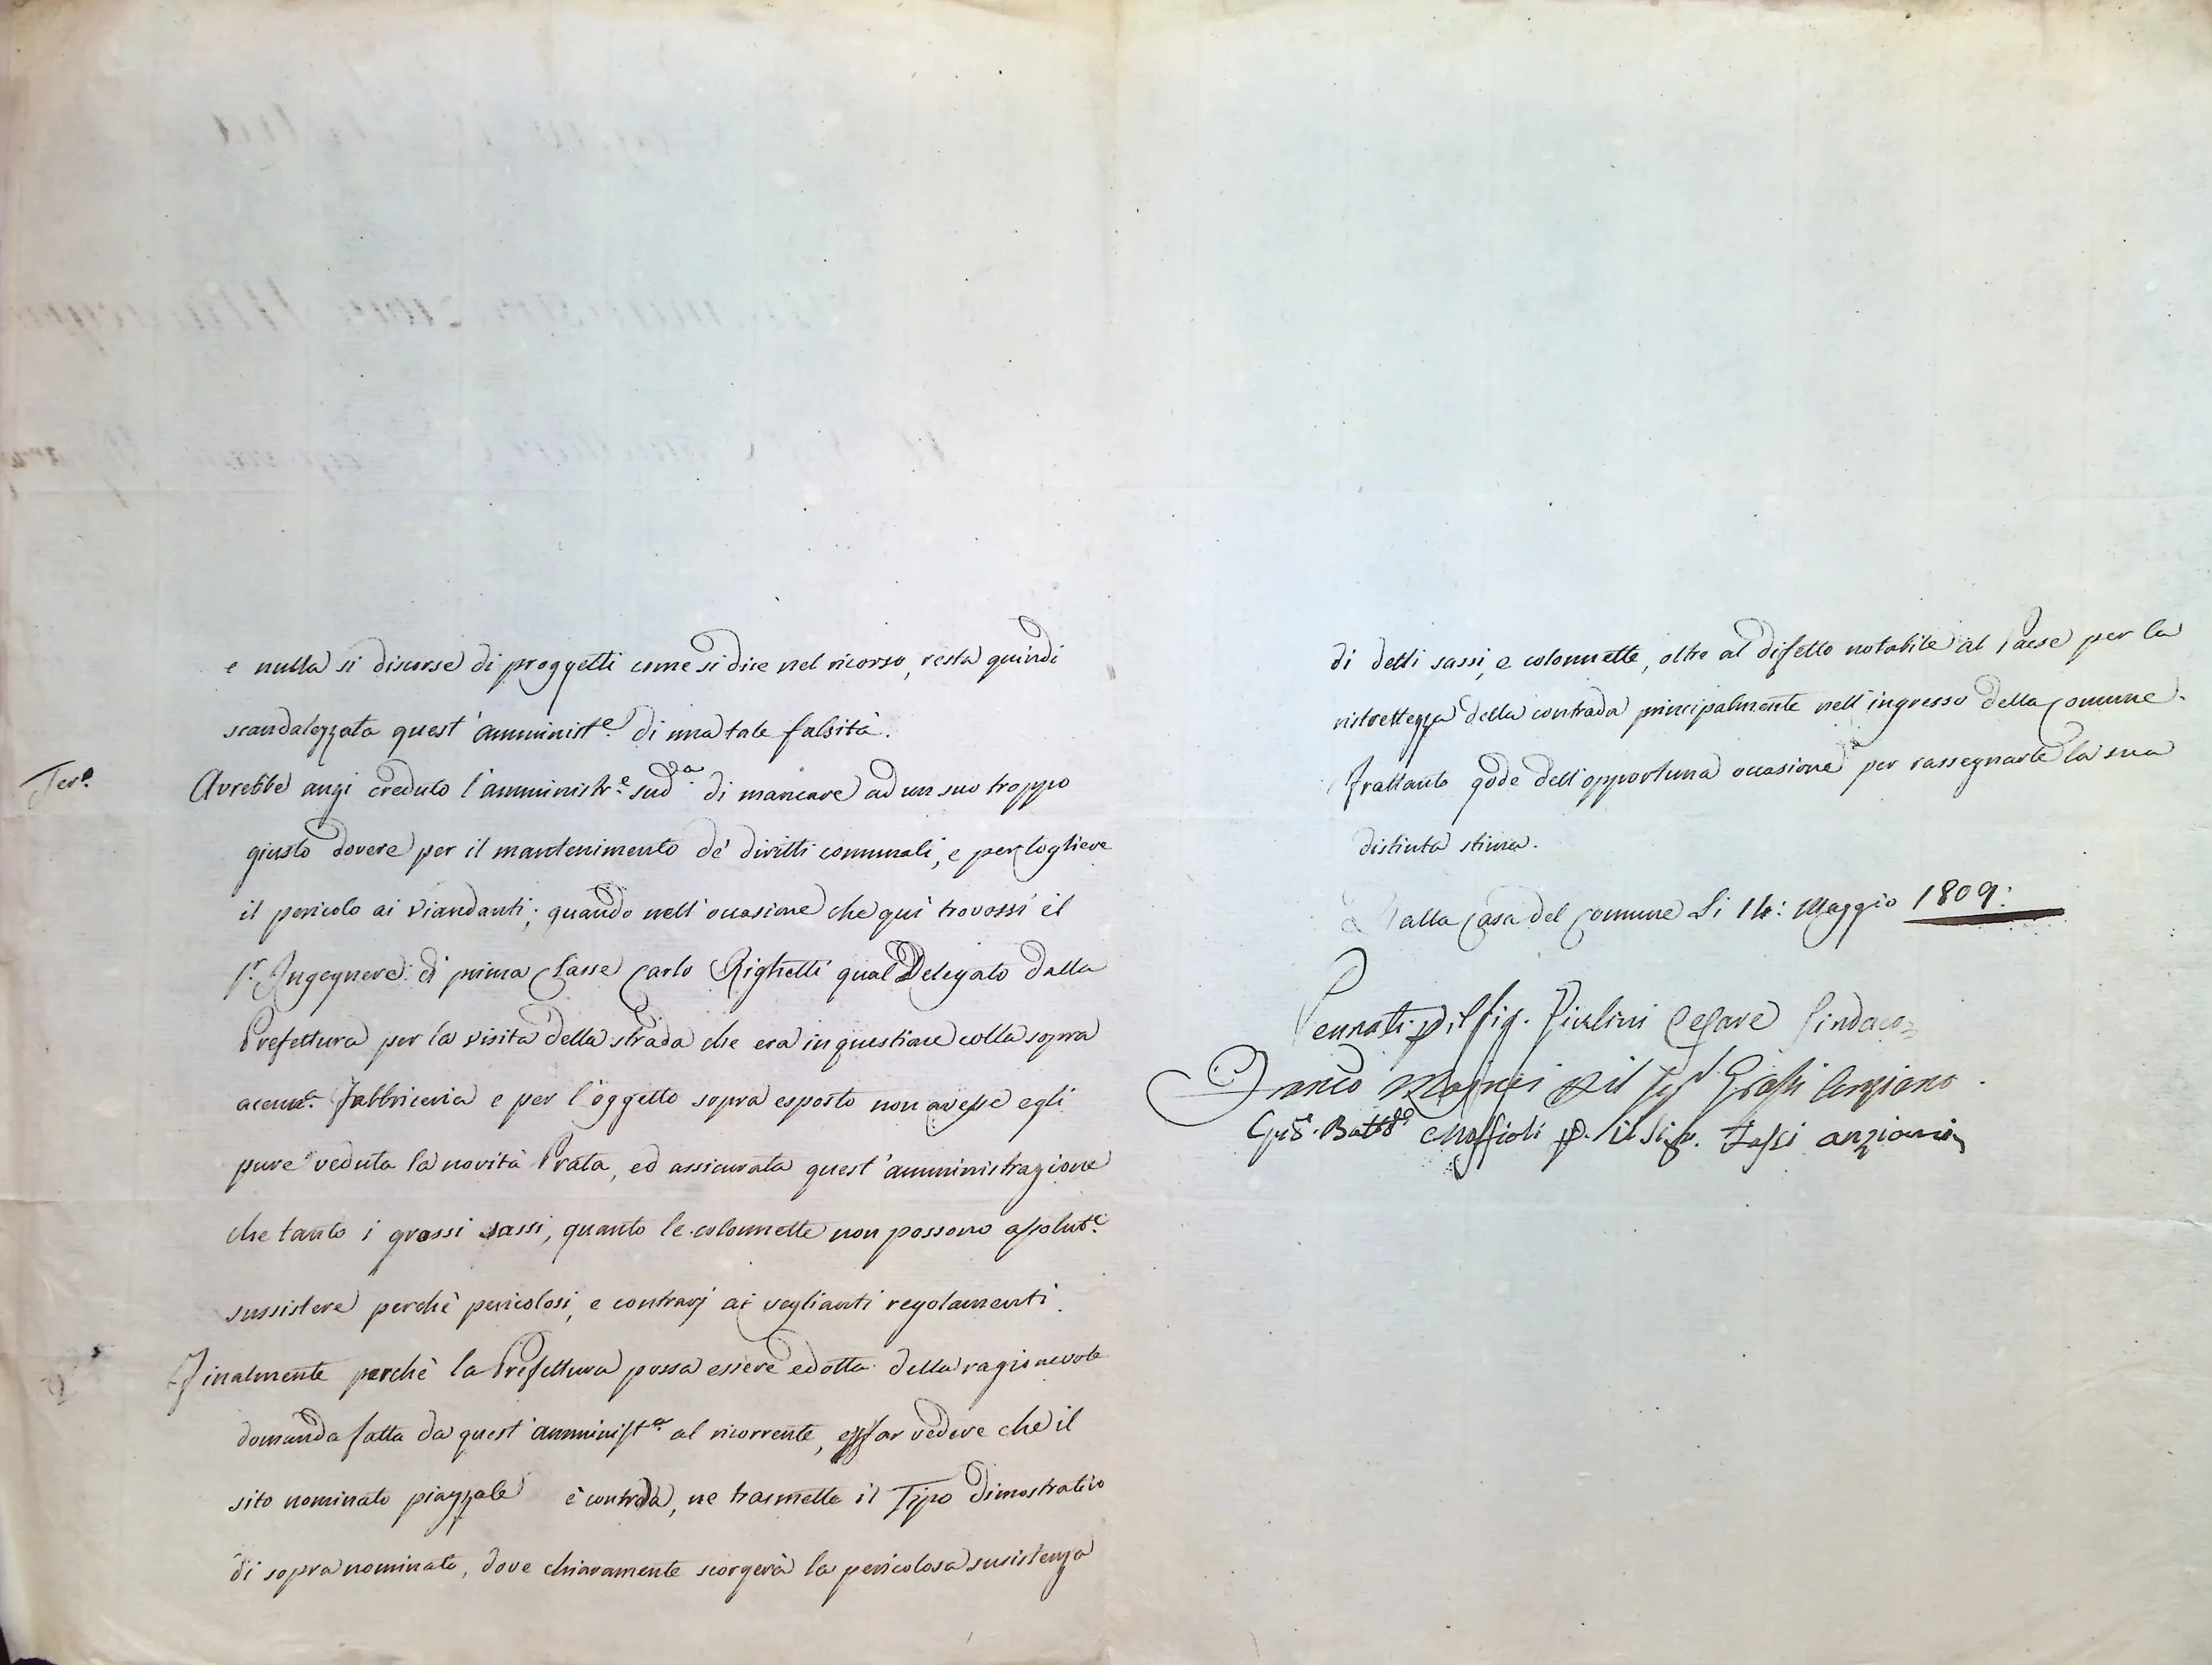 e nulla si discorse di proggetti come si dice nel ricorso, resta quindi
scandalezzata quest'amminist.e di una tale falsità.
Ter.o
Avrebbe anzi creduto l'amministr.e sud.a di mancare ad un suo troppo
giusto dovere per il mantenimento de' diritti comunali, e per togliere
il pericolo ai viandanti; quando nell'occasione che qui trovossi il
S.r Ingegnere di prima Classe Carlo Righetti qual Delegato dalla
Prefettura per la visita della strada che era in questione colla sopra
acenn.a Fabbriceria e per l'oggetto sopra esposto non avesse egli
pure veduta la novità Prata, ed assicurata quest'amministrazione
che tanto i grossi sassi, quanto le colonnette non possono assolut.e
sussistere perchè pericolosi, e contrarj ai veglianti regolamenti.
Finalmente perchè la Prefettura possa essere edotta della ragionevole
domanda fatta da quest'amminist.e al ricorrente, e far vedere che il
sito nominato piazzale è contrada, ne trasmette il Tipo dimostrativo
di sopra nominato, dove chiaramente scorgerà la pericolosa susistenza
di detti sassi, e colonnette, oltre al difetto notabile al Paese per la
ristrettezza della contrada principalmente nell'ingresso della Comune.
Frattanto gode dell'opportuna occasione per rassegnarle la sua
distinta stima.
Dalla Casa del Comune Li 14: Maggio 1809:
Pennati p. il Sig. Giulini Cesare Sindaco
Franco p. il Sig.r Grassi Anziano.
Batt.a Maffioli p. il Sig.r Tassi anziano